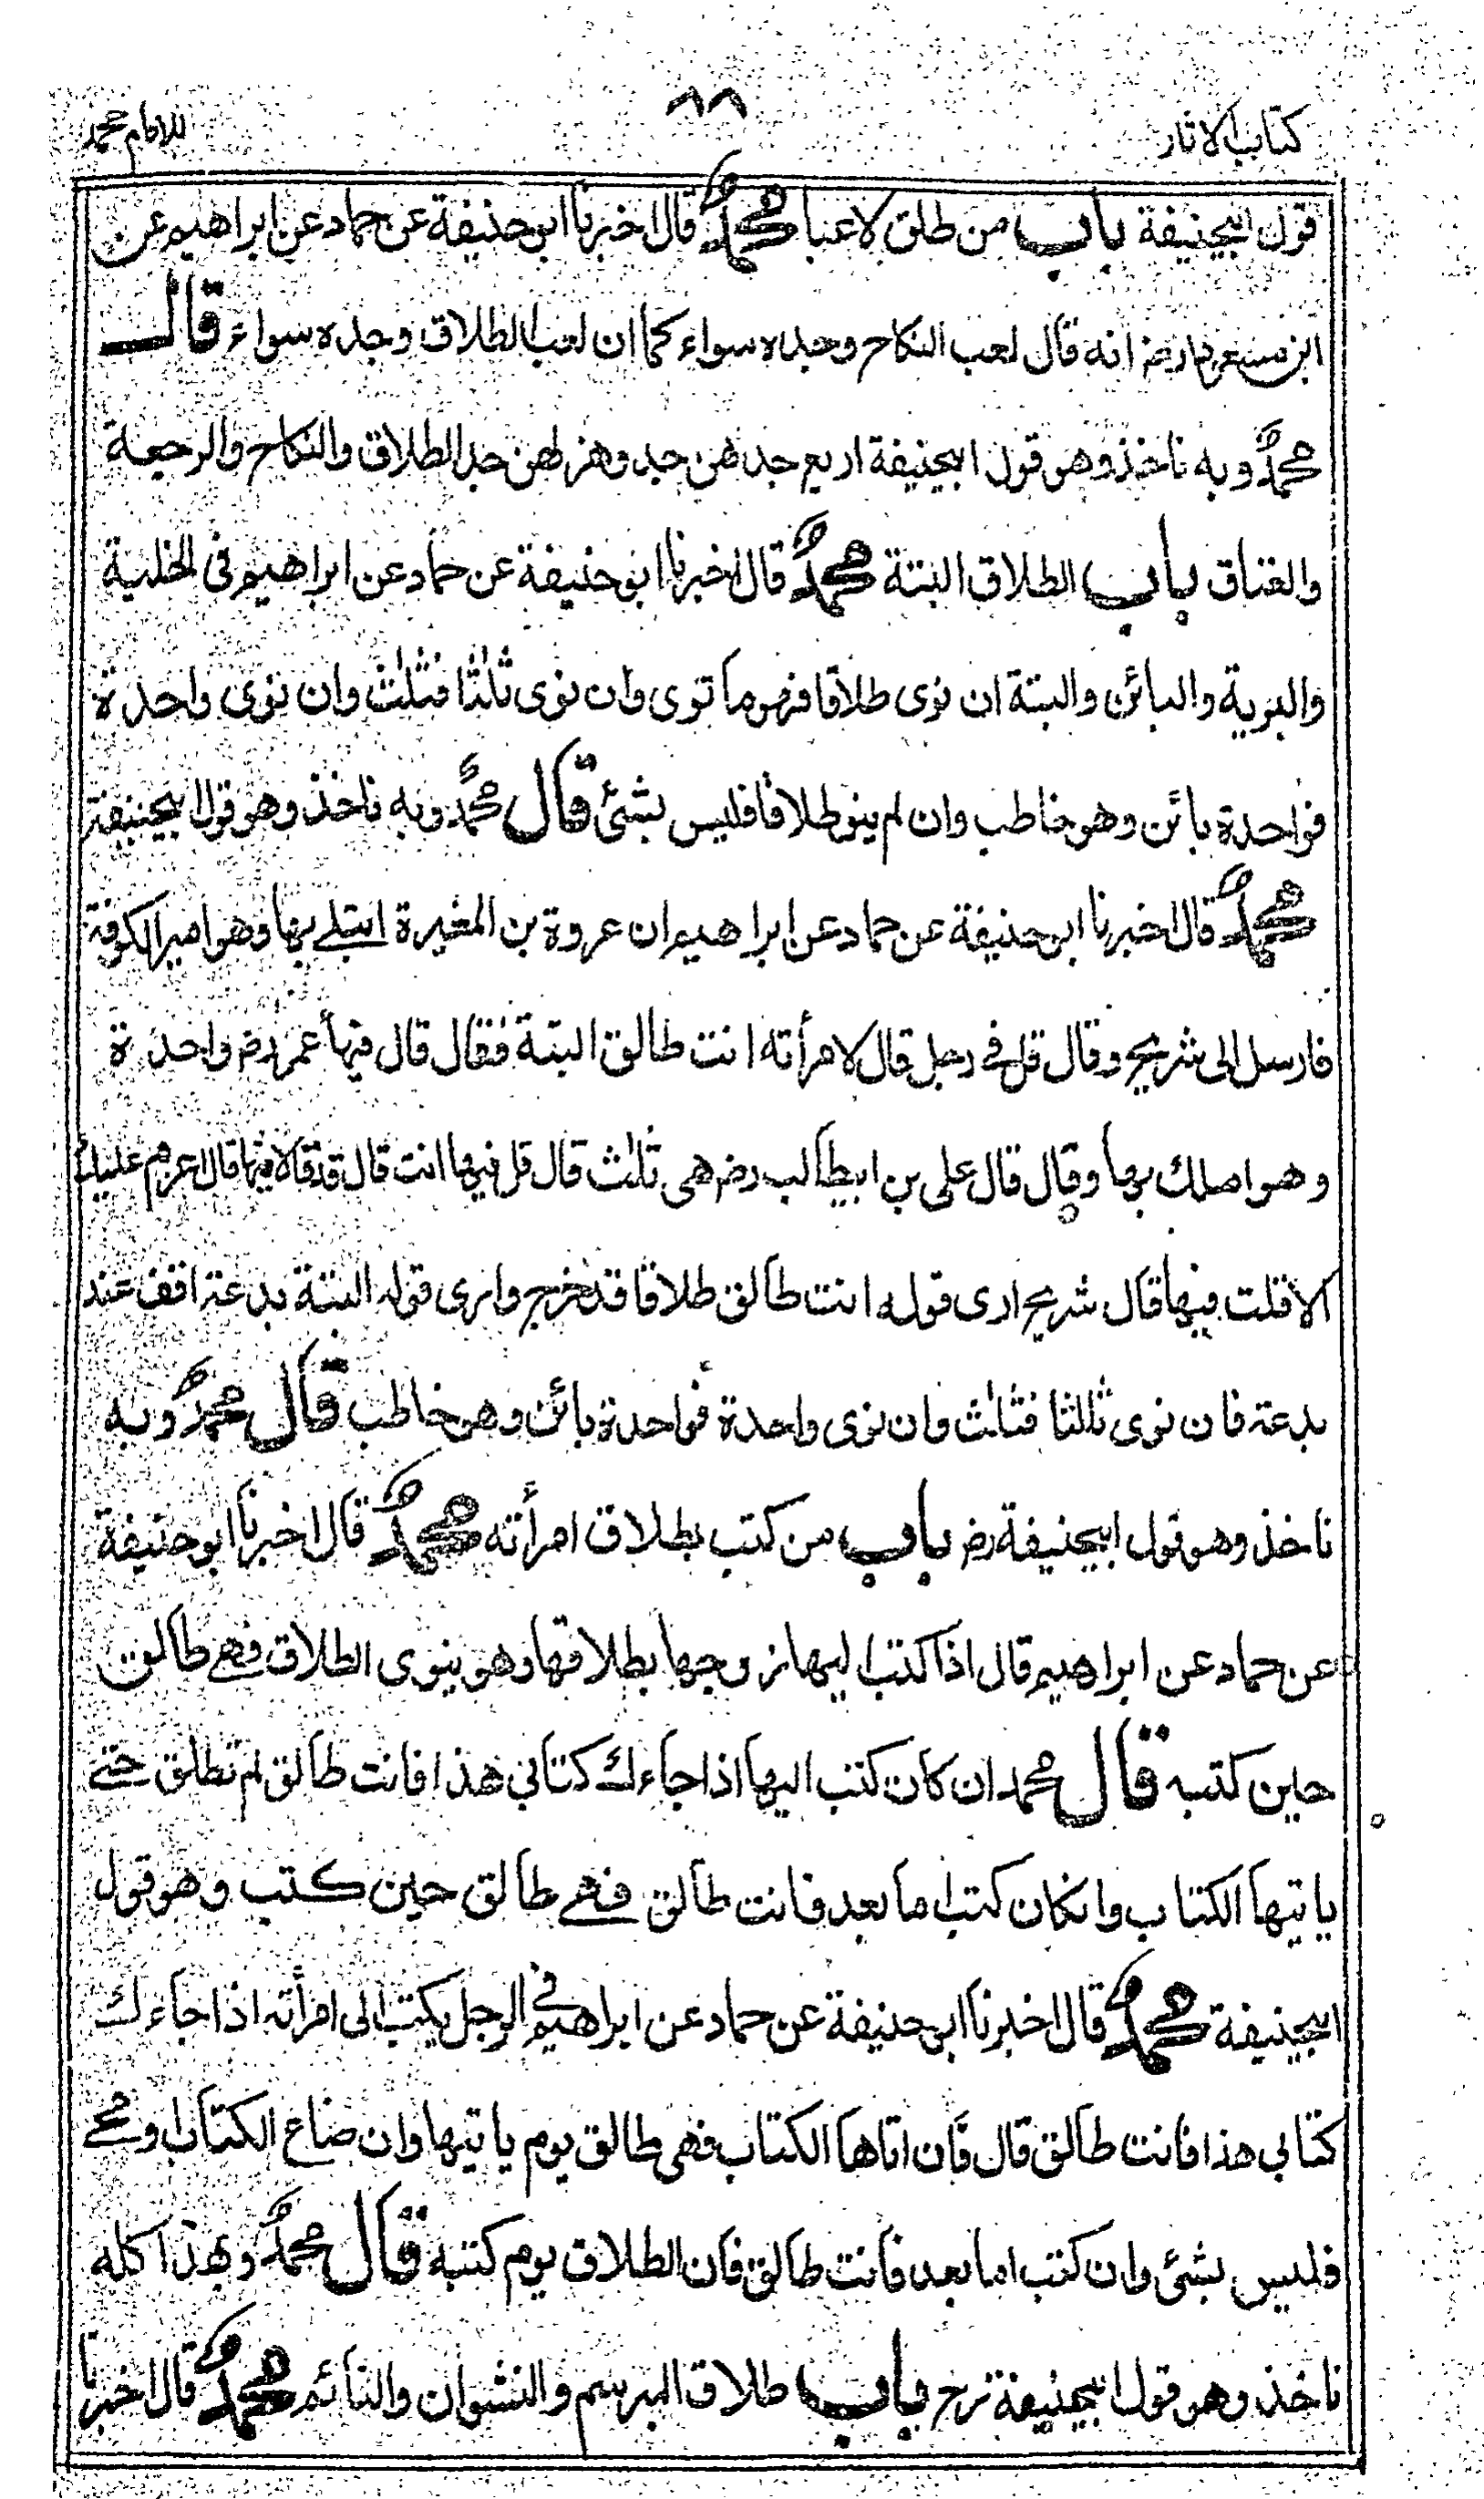 كتاب الاثار
٨٨
للامام محمد
قول ابيحنيفة باب من طلق لاعبا محمد قال اخبرنا ابو حنيفة عن حماد عن ابراهيم عن
ابن مسعود رض انه قال لعب النكاح وجده سواء كما ان لعب الطلاق وجده سواء قال
محمد وبه ناخذ وهو قول ابيحنيفة اربع جدهن جد وهزلهن جد الطلاق والنكاح والرجعة
والعتاق باب الطلاق البتة محمد قال اخبرنا ابو حنيفة عن حماد عن ابراهيم فى الخلية
والبرية والبائن والبتة ان نوى طلاقا فهو ما نوى وان نوى ثلثا فثلث وان نوى واحدة
فواحدة بائن وهو خاطب وان لم ينو طلاقا فليس بشئ قال محمد وبه ناخذ وهو قول ابيحنيفة
محمد قال اخبرنا ابو حنيفة عن حماد عن ابراهيم ان عروة بن المغيرة ابتلے بها وهو امير الكوفة
فارسل الى شريح وقال قل فے رجل قال لامرأته انت طالق البتة فقال قال فيها عمر رض واحدة
وهو املك بها وقال قال على بن ابيطالب رض هى ثلث قال قل فيها انت قال قد قالا فيها قال اعزم عليك
الا قلت فيها قال شريح ارى قوله انت طالق طلاقا قد خرج وارى قوله البتة بدعة اقف عند
بدعة فان نوى ثلثا فثلث وان نوى واحدة فواحدة بائن وهو خاطب قال محمد وبه
ناخذ وهو قول ابيحنيفة رض باب من كتب بطلاق امرأته محمد قال اخبرنا ابو حنيفة
عن حماد عن ابراهيم قال اذا كتب اليها زوجها بطلاقها وهو ينوى الطلاق فهے طالق
حين كتبه قال محمد ان كان كتب اليها اذا جاءك كتابي هذا فانت طالق لم تطلق حتے
ياتيها الكتاب وانكان كتب اما بعد فانت طالق فهے طالق حين كتب وهو قول
ابيحنيفة محمد قال اخبرنا ابو حنيفة عن حماد عن ابراهيم فے الرجل يكتب الى امرأته اذا جاءك
كتابي هذا فانت طالق قال فان اتاها الكتاب فهى طالق يوم ياتيها وان ضاع الكتاب او محے
فليس بشئ وان كتب اما بعد فانت طالق فان الطلاق يوم كتبه قال محمد وبهذا كله
ناخذ وهو قول ابيحنيفة رح باب طلاق المبرسم والنشوان والنائم محمد قال اخبرنا